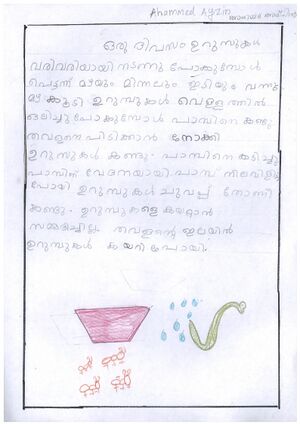 Ahammed Azim
ഒരു ദിപസം ഉറുമ്പുകൾ
വരിവരിയായി നടന്നു പോകുമ്പോൾ
പെട്ടന്ന് മഴയും മിന്നലും ഇടിയും വന്നു
മഴ കൂടി ഉറുമ്പുകൾ വെള്ളത്തിൽ
ഒലിച്ചു പോകുമ്പോൾ പാമ്പിനെ കണ്ടു
തവളനെ പിടിക്കാൻ നോക്കി
ഉറുമ്പുകൾ കണ്ടു. പാമ്പിനെ കടിച്ചു
പാമ്പിന് വേദനയായി. പാമ്പ് നിലവിളിച്ചു
പോയി ഉറുമ്പുകൾ ചുവപ്പ് തോണി
കണ്ടു. ഉറുമ്പുകളെ കയറ്റാൻ
സമ്മദിച്ചില്ല. തവളന്റെ ഇലയിൽ
ഉറുമ്പുകൾ കയറി പോയി.